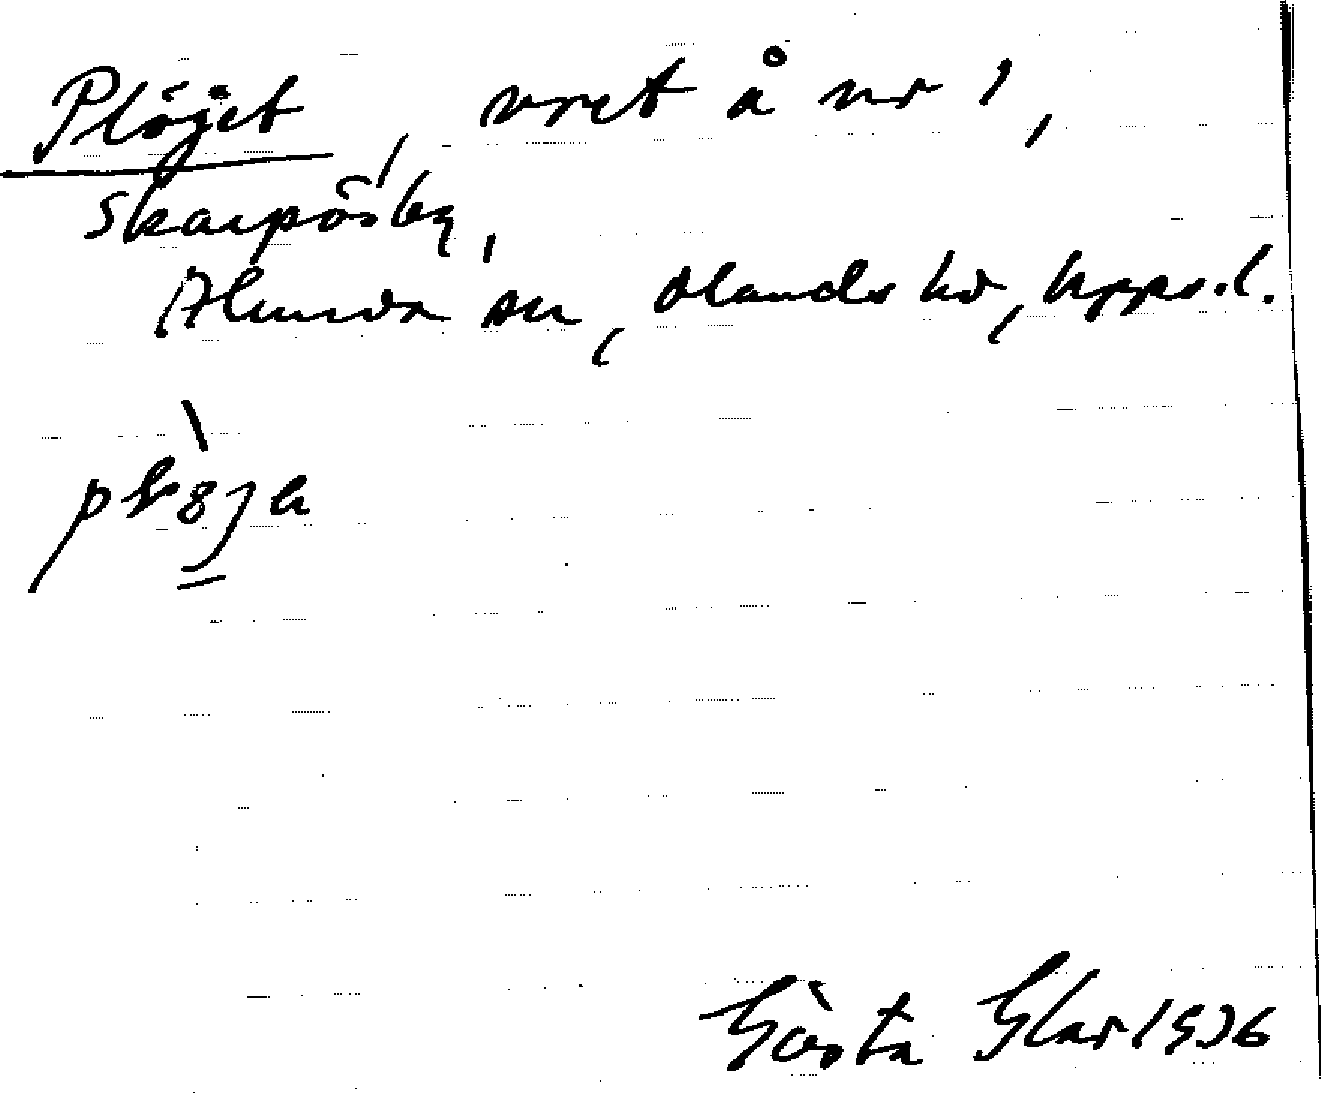 Plöjet, vret å nr 1,
Skarpösby,
Alunda sn, Olands hd, Upps. l.
Gösta Glas 1936